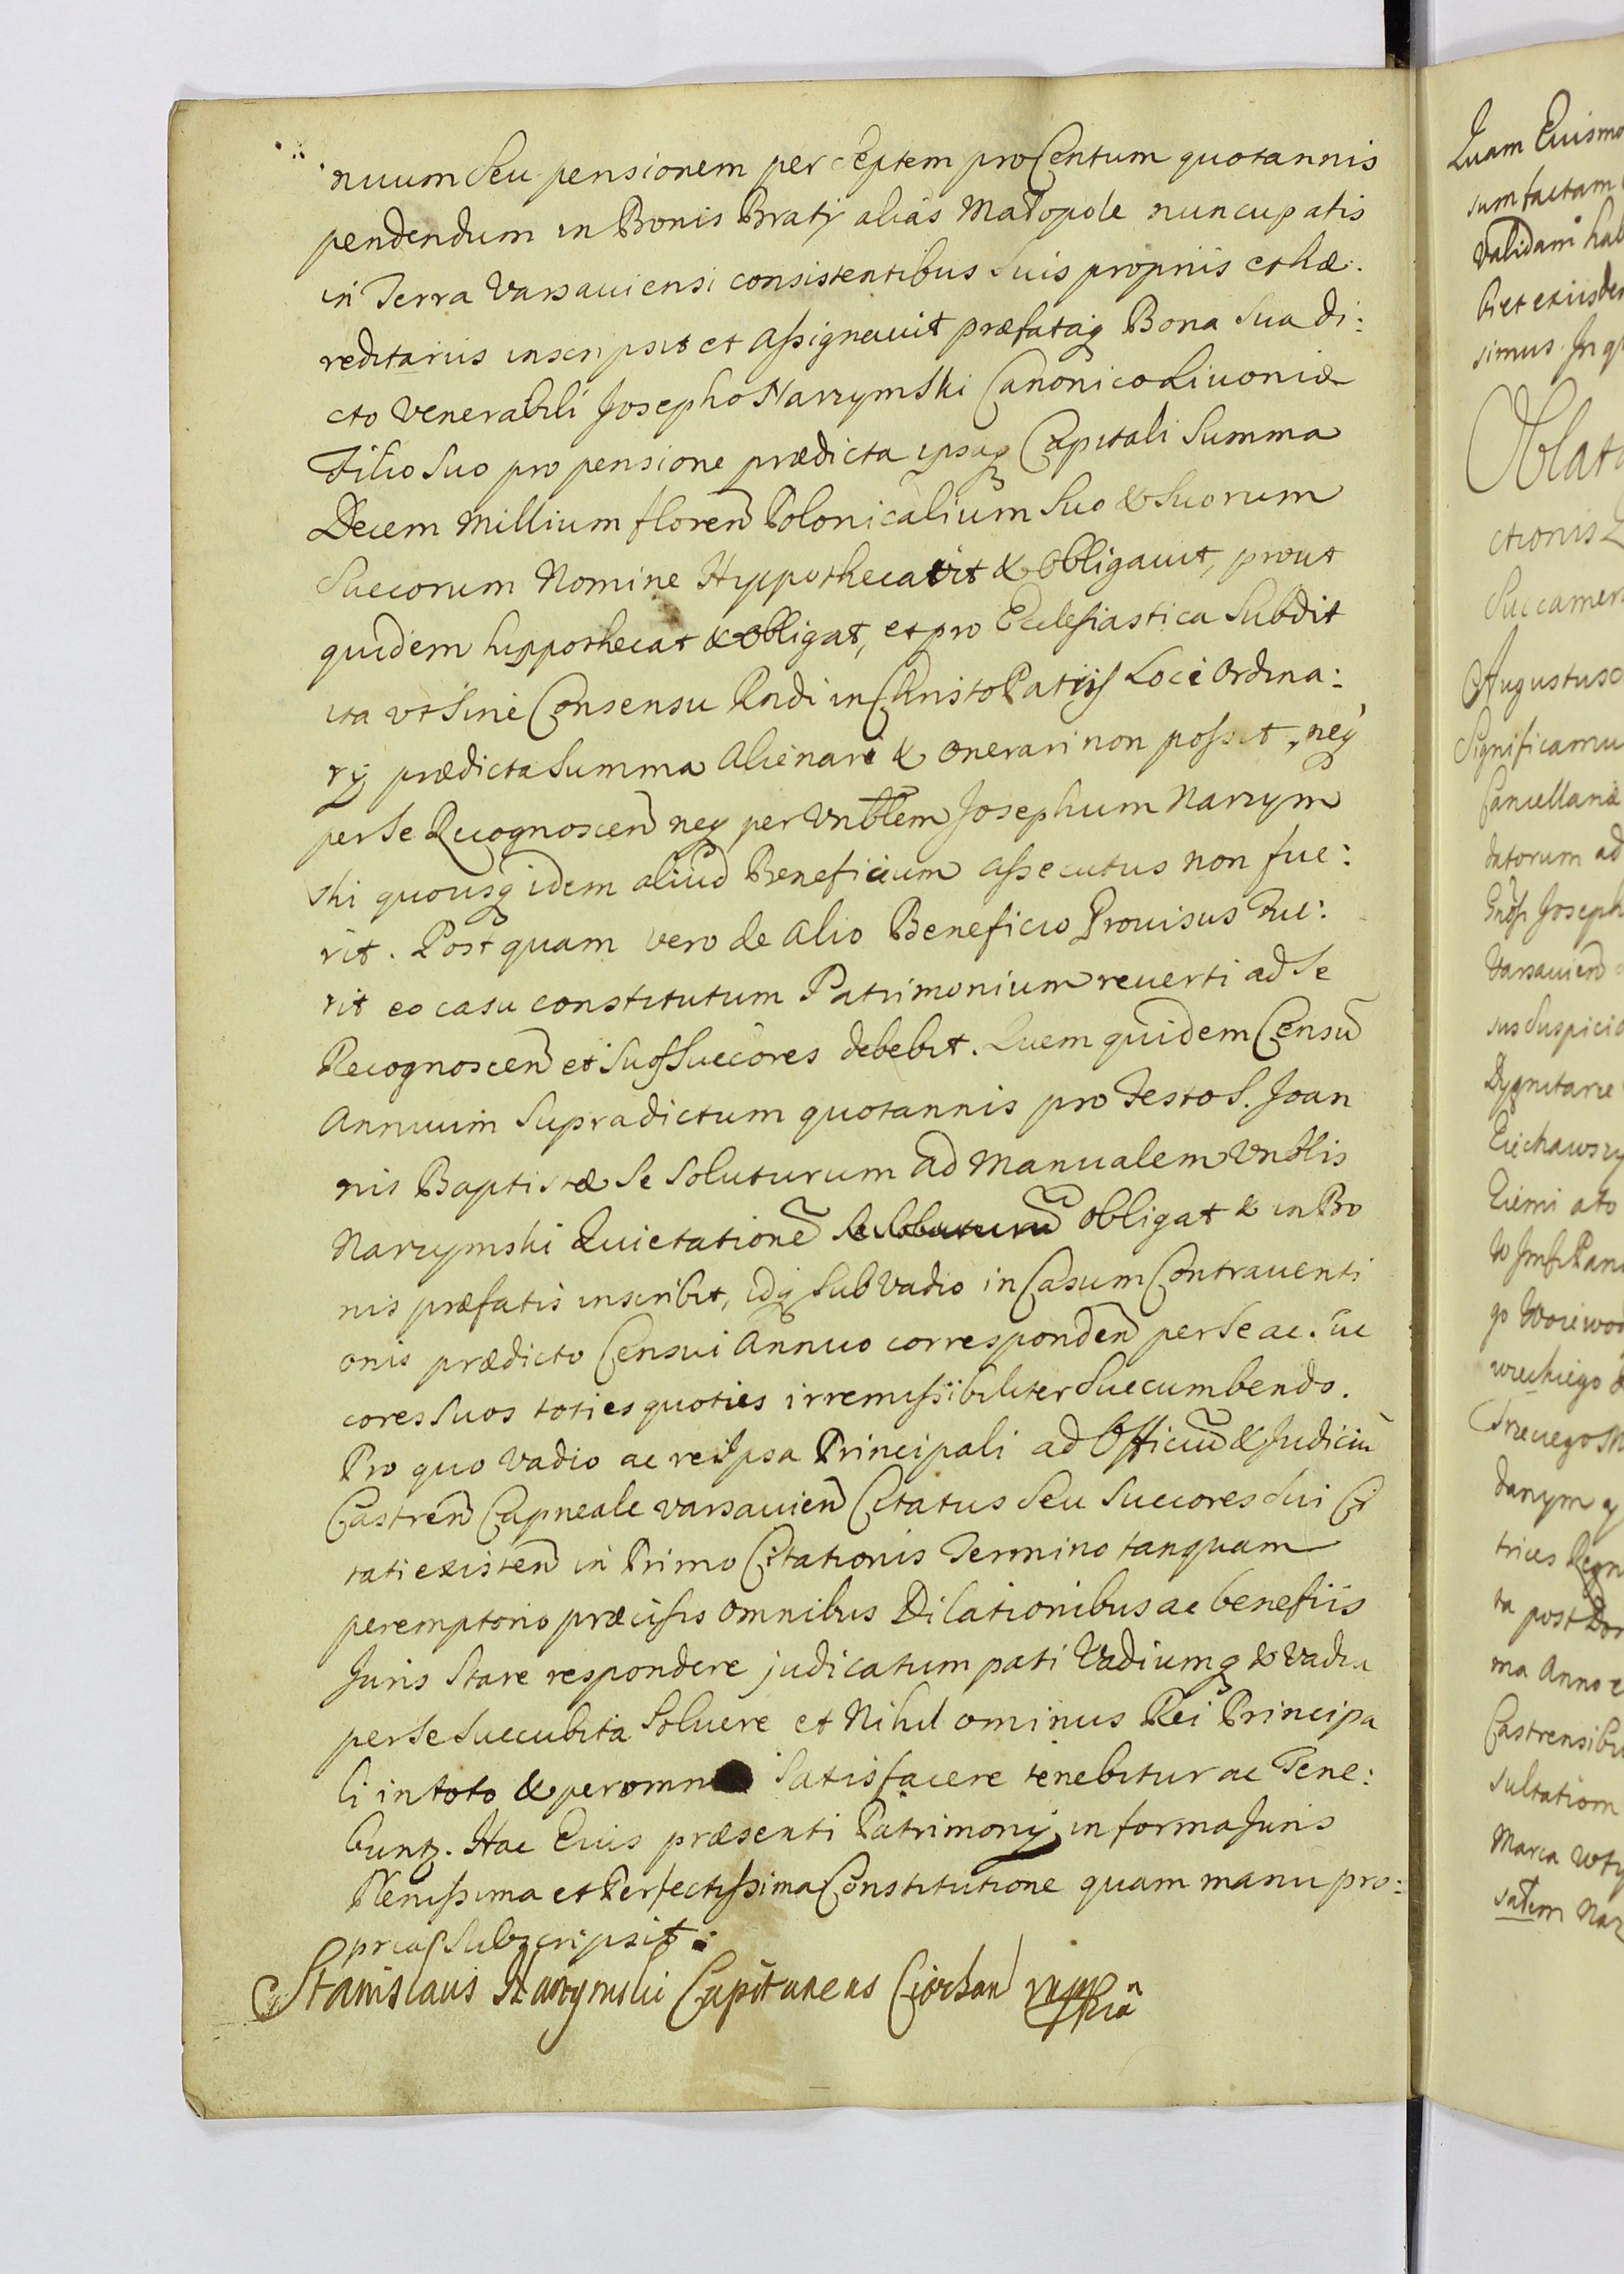 nuum Seu pensionem per Septem pro Centum quotannis
pendendum in Bonis Braty alias Małopole nuncupatis
in Terra Varsaviensi consistentibus Suis propriis et hæ:
reditariis inscripsit et assignavit præfataq Bona Sua di:
cto Venerabili Josepho Narzymski Canonico Livoniæ
Filio Suo pro pensione prædicta ipsaq Capitali Summa
Decem Millium floren Polonicalium Suo & Suorum
Succorum Nomine Hyppothecavit & Obligavit, prout
quidem hippothecat & obligat, et pro Ecclesiastica Subdit
ita vt Sine Consensu Rndi in Christo Patris Loci Ordina:
rij prædicta Summa Alienari & onerari non possit, neq
per Se Recognoscen neq per Vnblem Josephum Narzym
ski quousq idem aliud Beneficium assecutus non fue:
rit. Post quam vero de alio Beneficio Provisus Fue:
rit eo casu constitutum Patrimonium reverti ad Se
Recognoscen et Suos Succores debebit. Quem quidem Censu
Annuum Supradictum quotannis pro Festo S. Joan
nis Baptistæ Se Soluturum ad Manualem Vnblis
Narzymski Quietatione Se Soluturu obligat & in Bo
nis præfatis inscribit, idq Sub Vadio in Casum Contraventi
onis prædicto Censui Annuo corresponden per Se ac Suc
cores Suos toties quoties irremissibiliter Succumbendo.
Pro quo Vadio ac re ipsa Principali ad Officiu & Judiciu
Castren Capneale Varsavien Citatus Seu Succores Sui Ci
tati existen in Primo Citationis Termino tanquam
peremptorio præcisis omnibus Dilationibus ac benefiis
Juris Stare respondere judicatum pati Vadiumq & Vadia
per Se Succubita Solvere et Nihil ominus Rei Principa
li in toto & per omnia Satisfacere tenebitur ac Tene:
buntz. Hac Eius præsenti Patrimonij in forma Juris
Plenissima et Perfectissima Constitutione quam manu pro:
pria Subscripsit:
Stanislaus Narzymski Capitaneus Ciechan mppria
Quam Eiusmo
sum factam
validam hab
simus. In q
Oblat
ctionis
Succamer
Augustus
Significamu
Cancellariæ
datorum ad
Joseph
Varsavien
sus Suspicio
Ciechansz
Ziemi ato
go Woiewod
danym y
trices Regn
ta post Do
ma Anno
Castrensibu
Sultation